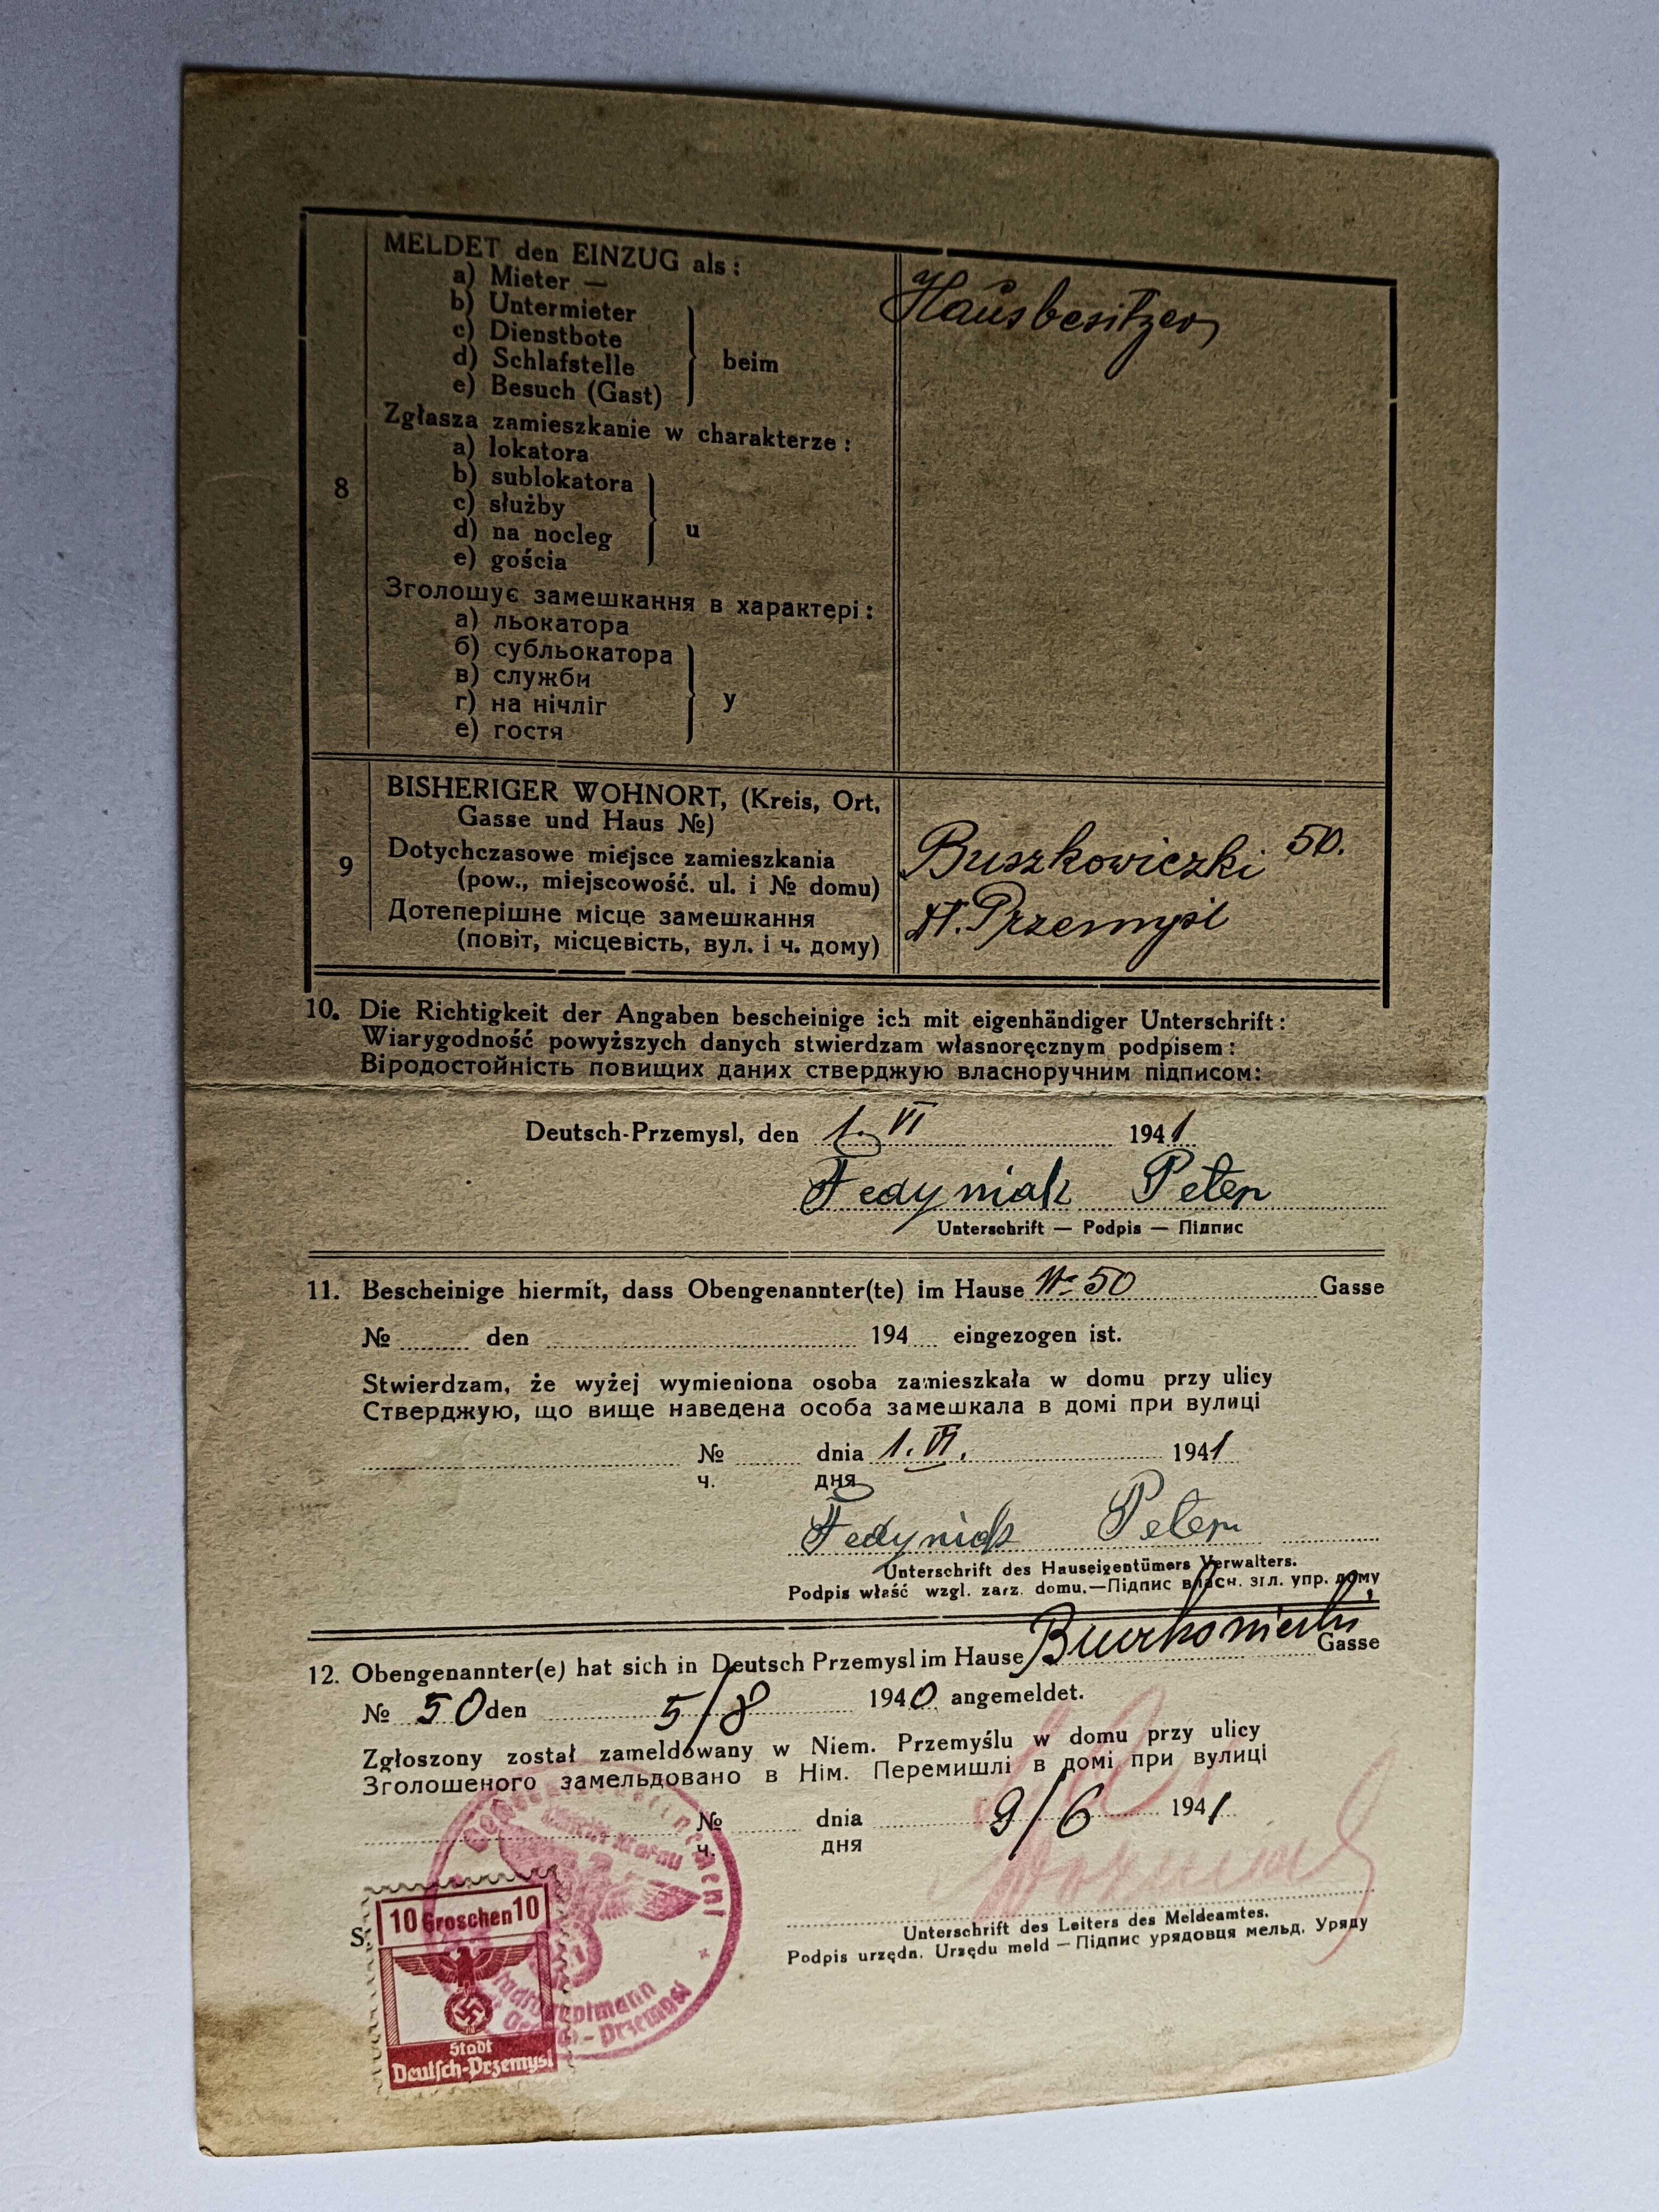 MELDET den EINZUG als:
a) Mieter —
b) Untermieter
c) Dienstbote
d) Schlafstelle
e) Besuch (Gast)
beim
Hausbesitzer
Zgłasza zamieszkanie w charakterze:
a) lokatora
b) sublokatora
c) służby
d) na nocleg
e) gościa
u
8
Зголошує замешкання в характері:
а) льокатора
б) субльокатора
в) служби
г) на нічліг
е) гостя
у
9
BISHERIGER WOHNORT, (Kreis, Ort,
Gasse und Haus №)
Dotychczasowe miejsce zamieszkania
(pow., miejscowość. ul. i № domu)
Дотеперішне місце замешкання
(повіт, місцевість, вул. і ч. дому)
Buszkowiczki 50.
Przemyśl
10. Die Richtigkeit der Angaben bescheinige ich mit eigenhändiger Unterschrift:
Wiarygodność powyższych danych stwierdzam własnoręcznym podpisem:
Віродостойність повищих даних стверджую власноручним підписом:
Deutsch-Przemysl, den 1. VI 1941
Fedyniak Peter
Unterschrift — Podpis — Підпис
11. Bescheinige hiermit, dass Obengenannter(te) im Hause № 50 Gasse
№ den 194 eingezogen ist.
Stwierdzam, że wyżej wymieniona osoba zamieszkała w domu przy ulicy
Стверджую, що вище наведена особа замешкала в домі при вулиці
№ dnia 1. VI. 1941
ч. дня
Fedyniak Peter
Unterschrift des Hauseigentümers Verwalters.
Podpis właść wzgl. zarz. domu.—Підпис власн. згл. упр. дому
12. Obengenannter(e) hat sich in Deutsch Przemysl im Hause Gasse
№ 50 den 5/8 1940 angemeldet.
Zgłoszony został zameldowany w Niem. Przemyślu w domu przy ulicy
Зголошеного замельдовано в Нім. Перемишлі в домі при вулиці
№ dnia 9/6 1941
ч. дня
Unterschrift des Leiters des Meldeamtes.
Podpis urzędn. Urzędu meld — Підпис урядовця мельд. Уряду
S.
10 Groschen 10
Stadt
Deutsch-Przemysl
Deutsch-Przemysl